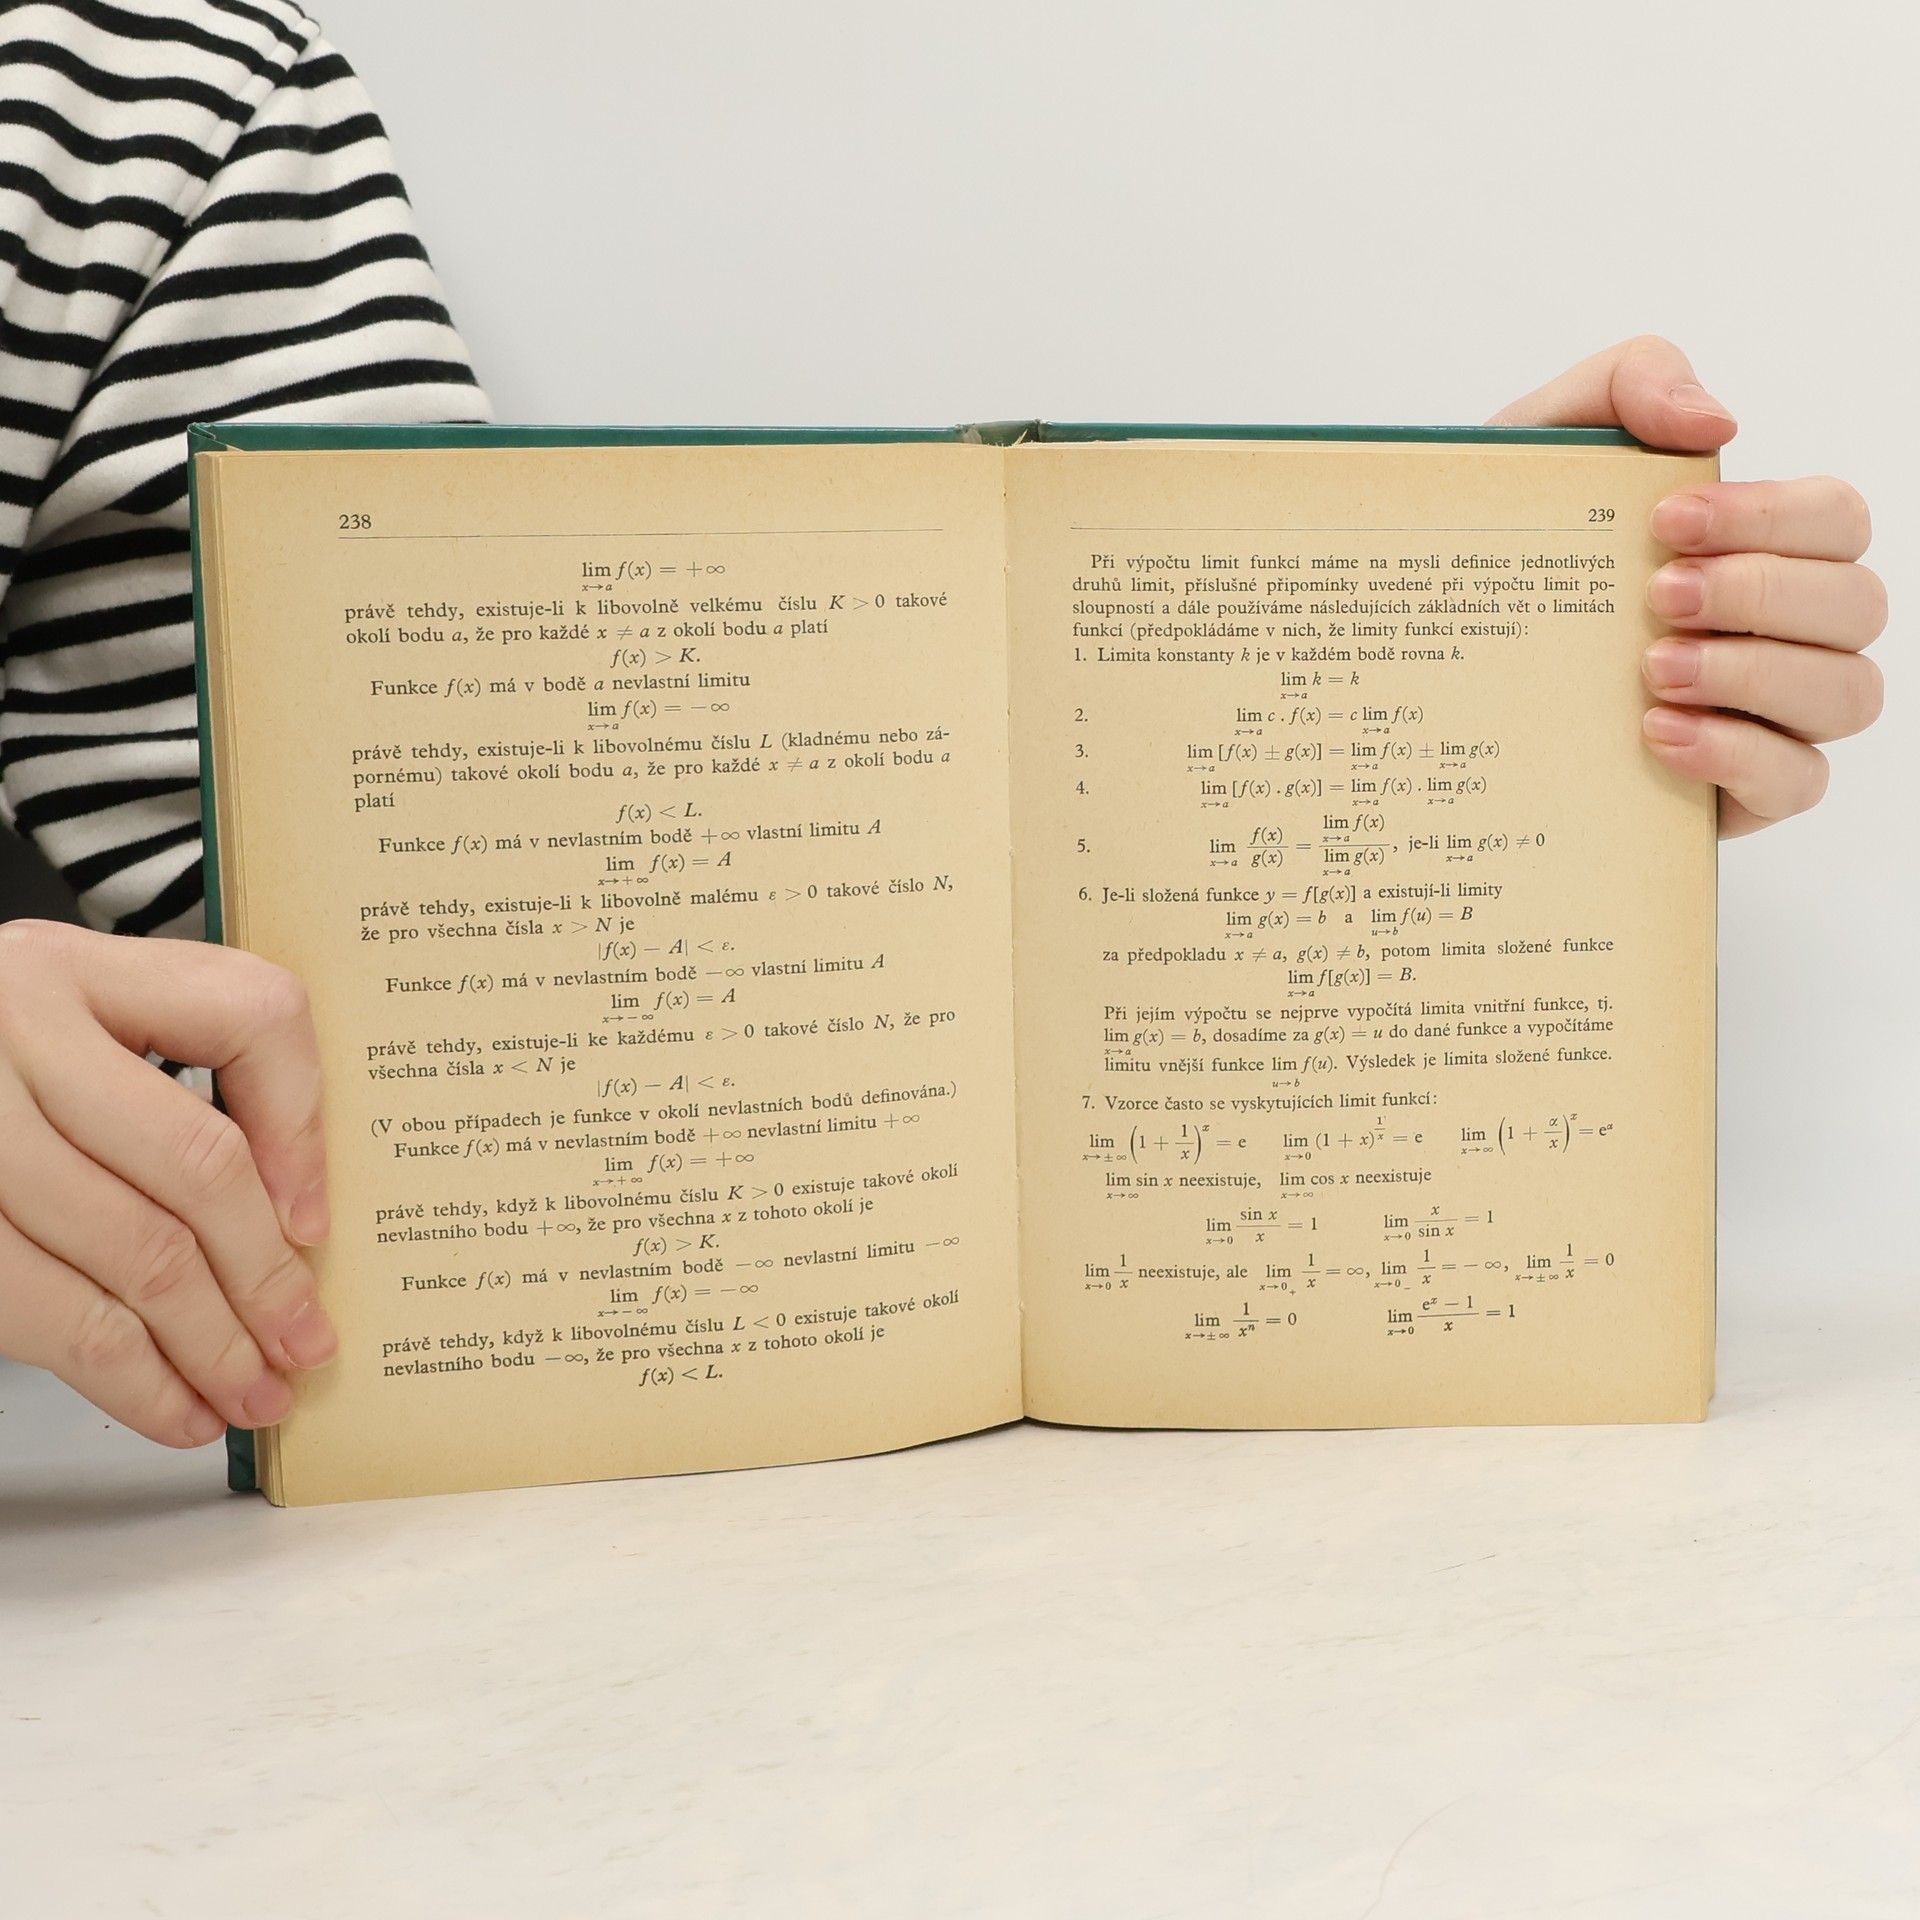 238
lim f(x) = +∞
x→a
právě tehdy, existuje-li k libovolně velkému číslu K > 0 takové
okolí bodu a, že pro každé x ≠ a z okolí bodu a platí
f(x) > K.
Funkce f(x) má v bodě a nevlastní limitu
lim f(x) = −∞
x→a
právě tehdy, existuje-li k libovolnému číslu L (kladnému nebo zá-
pornému) takové okolí bodu a, že pro každé x ≠ a z okolí bodu a
platí
f(x) < L.
Funkce f(x) má v nevlastním bodě +∞ vlastní limitu A
lim f(x) = A
x→+∞
právě tehdy, existuje-li k libovolně malému ε > 0 takové číslo N,
že pro všechna čísla x > N je
|f(x) − A| < ε.
Funkce f(x) má v nevlastním bodě −∞ vlastní limitu A
lim f(x) = A
x→−∞
právě tehdy, existuje-li ke každému ε > 0 takové číslo N, že pro
všechna čísla x < N je
|f(x) − A| < ε.
(V obou případech je funkce v okolí nevlastních bodů definována.)
Funkce f(x) má v nevlastním bodě +∞ nevlastní limitu +∞
lim f(x) = +∞
x→+∞
právě tehdy, když k libovolnému číslu K > 0 existuje takové okolí
nevlastního bodu +∞, že pro všechna x z tohoto okolí je
f(x) > K.
Funkce f(x) má v nevlastním bodě −∞ nevlastní limitu −∞
lim f(x) = −∞
x→−∞
právě tehdy, když k libovolnému číslu L < 0 existuje takové okolí
nevlastního bodu −∞, že pro všechna x z tohoto okolí je
f(x) < L.
239
Při výpočtu limit funkcí máme na mysli definice jednotlivých
druhů limit, příslušné připomínky uvedené při výpočtu limit po-
sloupností a dále používáme následujících základních vět o limitách
funkcí (předpokládáme v nich, že limity funkcí existují):
1. Limita konstanty k je v každém bodě rovna k.
lim k = k
x→a
2. lim c . f(x) = c lim f(x)
x→a x→a
3. lim [f(x) ± g(x)] = lim f(x) ± lim g(x)
x→a x→a x→a
4. lim [f(x) . g(x)] = lim f(x) . lim g(x)
x→a x→a x→a
lim f(x)
x→a
5. lim f(x)/g(x) = , je-li lim g(x) ≠ 0
x→a x→a
lim g(x)
x→a
6. Je-li složená funkce y = f[g(x)] a existují-li limity
lim g(x) = b a lim f(u) = B
x→a u→b
za předpokladu x ≠ a, g(x) ≠ b, potom limita složené funkce
lim f[g(x)] = B.
x→a
Při jejím výpočtu se nejprve vypočítá limita vnitřní funkce, tj.
lim g(x) = b, dosadíme za g(x) = u do dané funkce a vypočítáme
x→a
limitu vnější funkce lim f(u). Výsledek je limita složené funkce.
u→b
7. Vzorce často se vyskytujících limit funkcí:
lim (1 + 1/x)^x = e lim (1 + x)^(1/x) = e lim (1 + α/x)^x = e^α
x→±∞ x→0 x→∞
lim sin x neexistuje, lim cos x neexistuje
x→∞ x→∞
lim sin x/x = 1 lim x/sin x = 1
x→0 x→0
lim 1/x neexistuje, ale lim 1/x = ∞, lim 1/x = −∞, lim 1/x = 0
x→0 x→0₊ x→0₋ x→±∞
lim 1/xⁿ = 0 lim (eˣ − 1)/x = 1
x→±∞ x→0